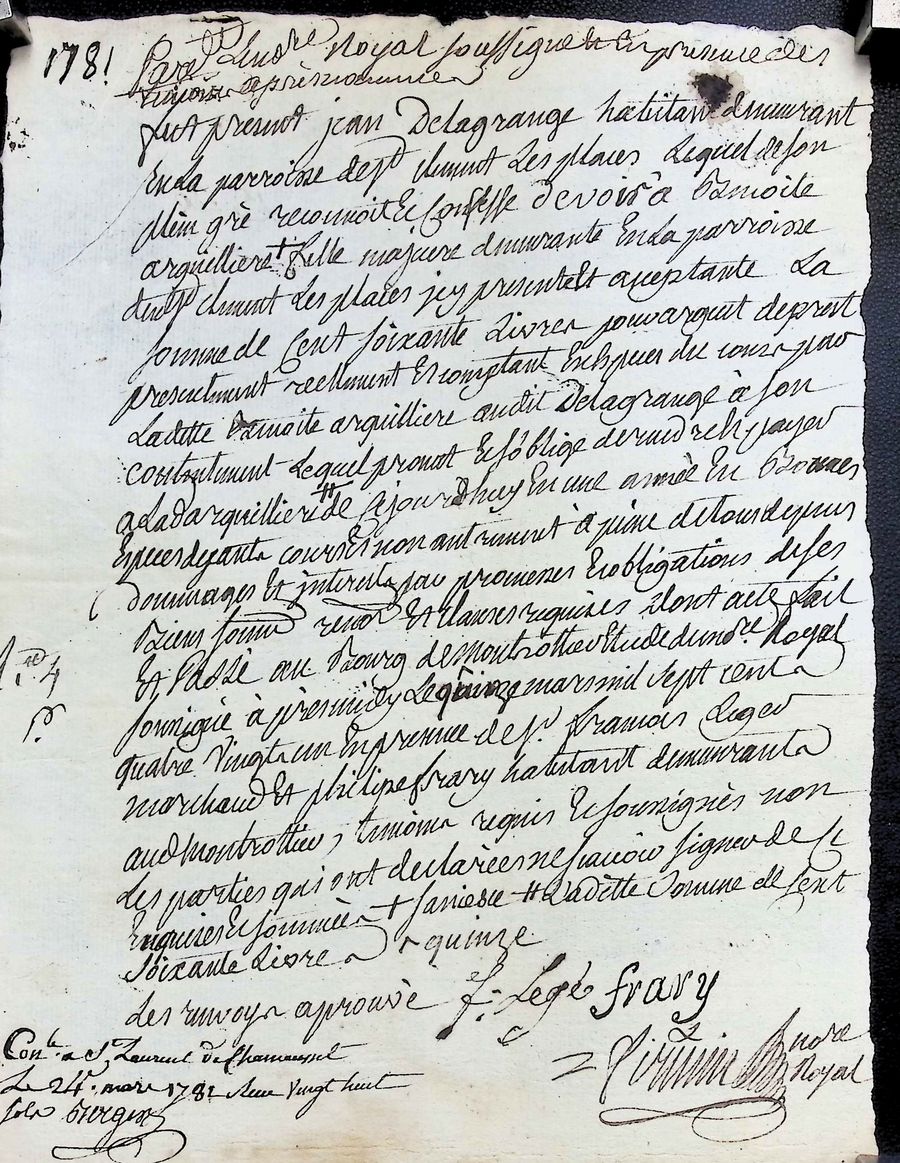 1781
Pard.t Lendre Royal soussigné et En presence des
temoins apres nommes
fut present jean Delagrange habitant demeurant
En La parroisse de St Clement Les places Lequel de son
plein gré reconnoit Et Confesse devoir a Benoite
arquilliere + fille majeure demeurante En La parroisse
dud St Clement Les places jcy presente Et aceptante La
somme de Cent soixante Livres pour argent de prest
presentement reellement Et comptant En Espèces du cours par
Laditte Benoite arquilliere audit Delagrange à son
contentement Lequel promet Et s'oblige de rendre Et payer
a Lad arquilliere # de ajourdhuy En une année En Bonnes
Especes dyants cours Et non autrement à peine de tous depens
dommages Et interets par promesses Et obligations de ses
Biens soumis renon Et Clauses requises Dont acte fait
Et Passé au Bourg de montrottier Etude du no.re Royal
soussigné à pres midy Le quinze mars mil sept cents
quatre Vingts un En presence de sr. francois Leger
marchand Et philipe frary habitant demeurants
aud montrottier, temoins requis Et soussignés non
Les parties qui ont declarées ne sçavoir signer de ce
Enquises Et sommées + sa niesse # Laditte Somme de Cent
soixante Livres quinze
Les renvoys aprouvé f. Legé frary
nore
Royal
Con.le a St Laurent de Chamousset
Le 24e. mars 1781 Reçu Vingt huit
sols